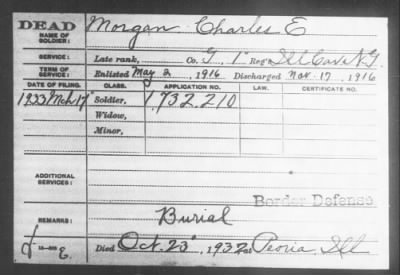 DEAD
NAME OF SOLDIER: Morgan Charles E
SERVICE: Late rank, Co. G, 1" Reg't Ill Cav N.G.
TERM OF SERVICE: Enlisted May 2, 1916. Discharged Nov. 17, 1916
DATE OF FILING. CLASS. APPLICATION NO. LAW. CERTIFICATE NO.
1933 Mch 17 Soldier, 1,732,210
Widow,
Minor,
ADDITIONAL SERVICES: Border Defense
REMARKS: Burial
Died Oct. 23, 1932 at Peoria, Ill